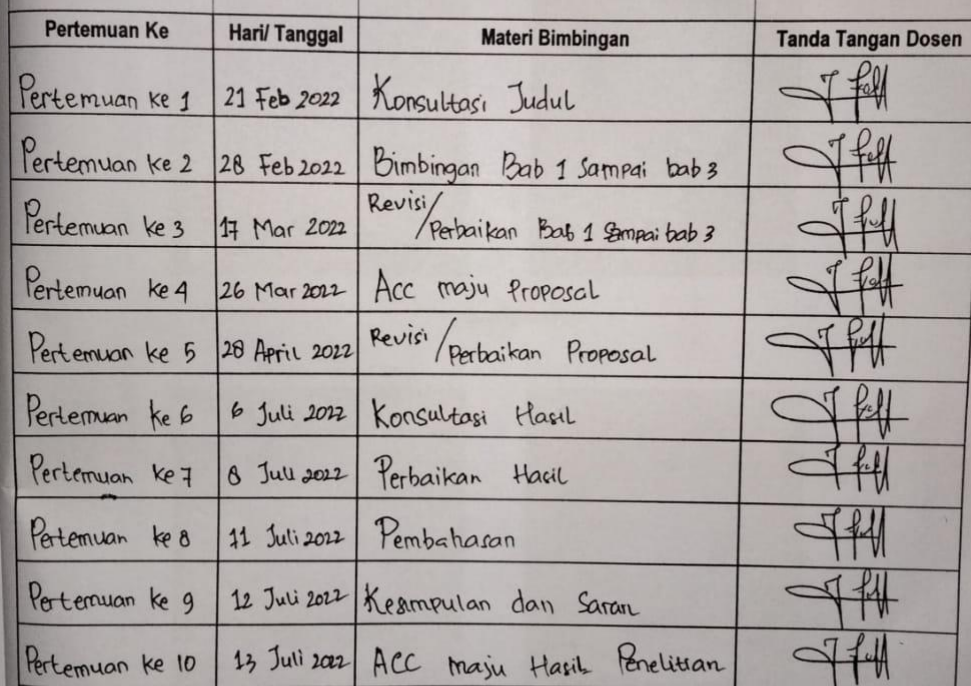 Pertemuan Ke Hari/ Tanggal Materi Bimbingan Tanda Tangan Dosen
Pertemuan ke 1 21 Feb 2022 Konsultasi Judul
Pertemuan ke 2 28 Feb 2022 Bimbingan Bab 1 Sampai bab 3
Pertemuan ke 3 17 Mar 2022 Revisi/Perbaikan Bab 1 Sampai bab 3
Pertemuan ke 4 26 Mar 2022 Acc maju Proposal
Pertemuan ke 5 28 April 2022 Revisi/Perbaikan Proposal
Pertemuan ke 6 6 Juli 2022 Konsultasi Hasil
Pertemuan ke 7 8 Juli 2022 Perbaikan Hasil
Pertemuan ke 8 11 Juli 2022 Pembahasan
Pertemuan ke 9 12 Juli 2022 Kesimpulan dan Saran
Pertemuan ke 10 13 Juli 2022 ACC maju Hasil Penelitian